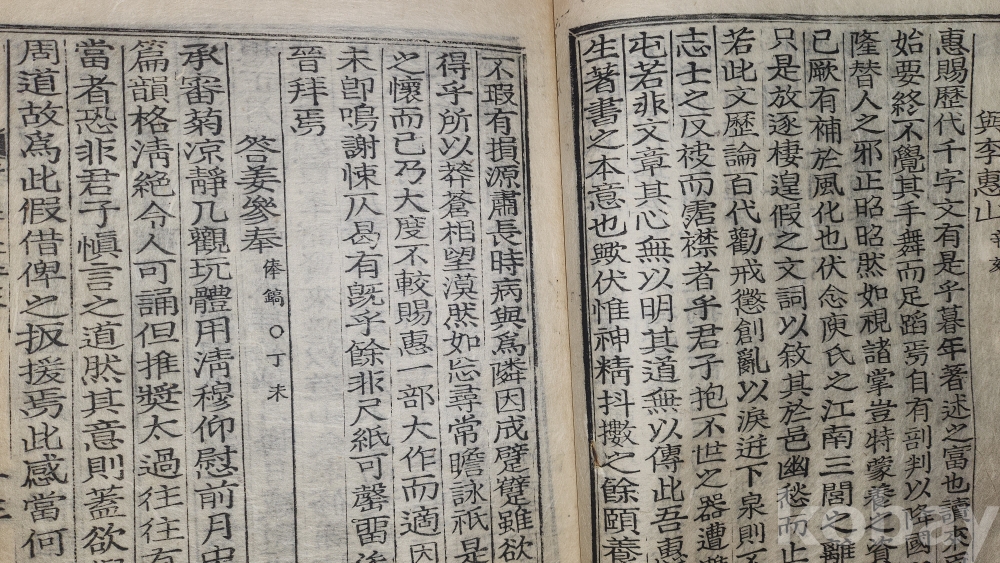 與李惠山 辛亥
惠賜歷代千字文有是乎暮年著述之富也讀來
始要終不覺其手舞而足蹈焉自有剖判以降國
隆替人之邪正昭昭然如視諸掌豈特蒙養之資
已厥有補於風化也伏念庾氏之江南三閭之離
只是放逐棲遑假之文詞以敘其於邑幽愁而止
若此文歷論百代勸戒懲創亂以淚迸下泉則
志士之反袂而霑襟者乎君子抱不世之器遭
屯若非文章其心無以明其道無以傳此吾惠
生著書之本意也歟伏惟神精抖擻之餘頤養
不瑕有損源肅長時病與爲隣因成躄躄雖欲
得乎所以莽蒼相望漠然如忘尋常瞻詠祇是
之懷而已乃大度不較賜惠一部大作而適因
未卽鳴謝悚仄曷有旣乎餘非尺紙可罄留
晉拜焉
答姜參奉 倕鎬 ○丁未
承審菊凉靜几觀玩體用淸穆仰慰前月中
篇韻格淸絶令人可誦但推奬太過往往有
當者恐非君子愼言之道然其意則蓋欲
周道故爲此假借俾之扳援焉此感當何
keoney